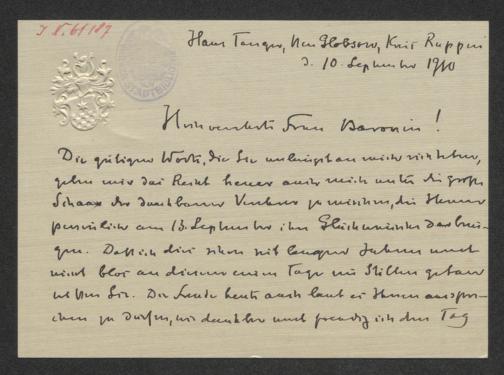 J. N. 61187
STADTBIBLIOTHEK
Haus Tanger, Neu Globsow, Kreis Ruppin
d. 10. September 1910
Hochverehrte Frau Baronin!
Die gütigen Worte, die Sie unlängst an mich richteten,
geben mir das Recht heuer auch mich unter die große
Schaar der dankbaren Verehrer zu mischen, die Ihnen
persönlich am 13. September ihre Glückwünsche darbrin-
gen. Daß ich dies schon seit langen Jahren und
nicht blos an diesem einen Tage im Stillen getan
Sie. Die Freude heute auch laut es Ihnen ausspre-
chen zu dürfen, wie dankbar und freudig ich den Tag